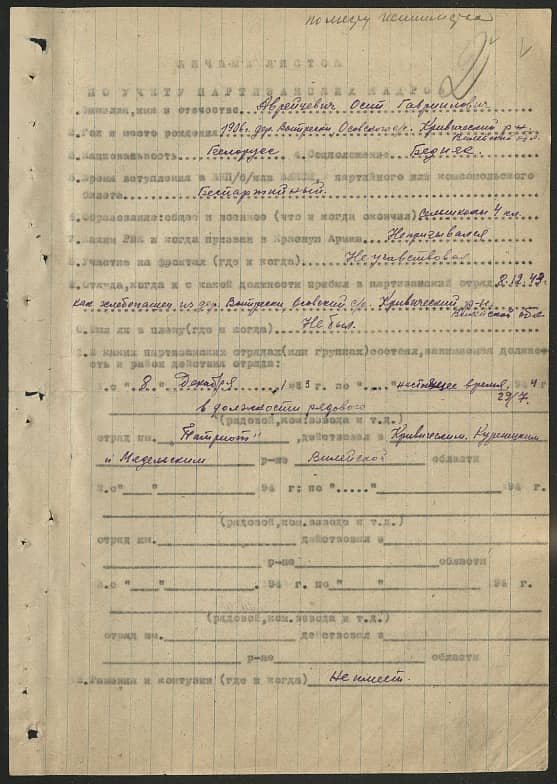 по месту жительства
2
ЛИЧНЫЙ ЛИСТОК
ПО УЧЕТУ ПАРТИЗАНСКИХ КАДРОВ
1.Фамилия,имя и отчество Аврейцевич Осип Гавриилович
2.Год и место рождения 1906г. дер. Вотрески Осовского с/с. Кривичский р-н.
Вилейской обл.
3.Национальность Белорус 4.Соцположение Бедняк.
5.Время вступления в ВКП/б/или ВЛКСМ, партийного или комсомольского
билета Беспартийный.
6.Образование:общее и военное (что и когда окончил) 4 кл.
7.Каким РВК и когда призван в Красную Армию Не призывался
8.Участие на фронтах (где и когда) Не участвовал
9.Откуда,когда и с какой должности прибыл в партизанский отряд 8.12.43
как хлебопашец из дер. Вотрески Осовский с/с. Кривический р-н.
Вилейской обл.
0.Был ли в плену(где и когда) Не был.
1.В каких партизанских отрядах(или группах)состоял,занимаемая должность
и район действия отряда:
1.с "8" Декабря 1943 г по " " настоящее время, 4 г
29/7.
в должности рядового
(рядовой,ком.взвода и т.д.)
отряд им. "Патриот" действовал в Кривическим. Куренецким
и Мядельским р-не Вилейской области
2.с" " 94 г: по "....." 94 г.
(рядовой,ком.взвода и т.д.)
отряд им. действовал в
р-не области
3.с " " 94 г. по" " 94 г.
(рядовой,ком.взвода и т.д.)
отряд им. действовал в
р-не области
Ранения и контузии (где и когда) Не имеет.